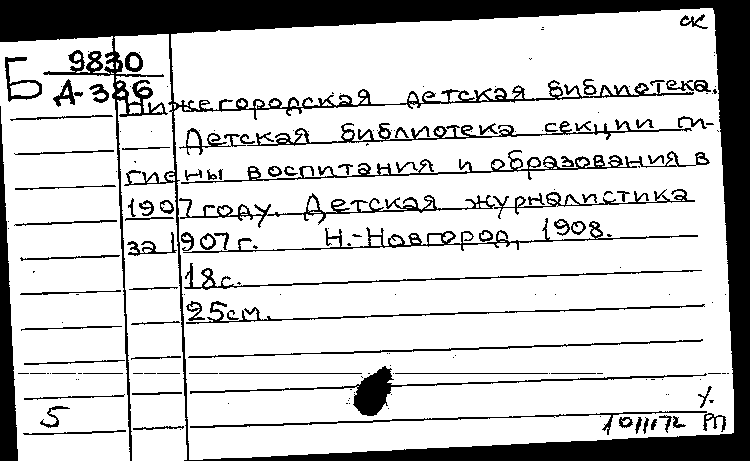 ск
Б 9830
Д-386
Нижегородская детская библиотека.
Детская библиотека секции ги-
гиены воспитания и образования в
1907 году. Детская журналистика
за 1907 г. Н.-Новгород, 1908.
18с.
25см.
5
РП